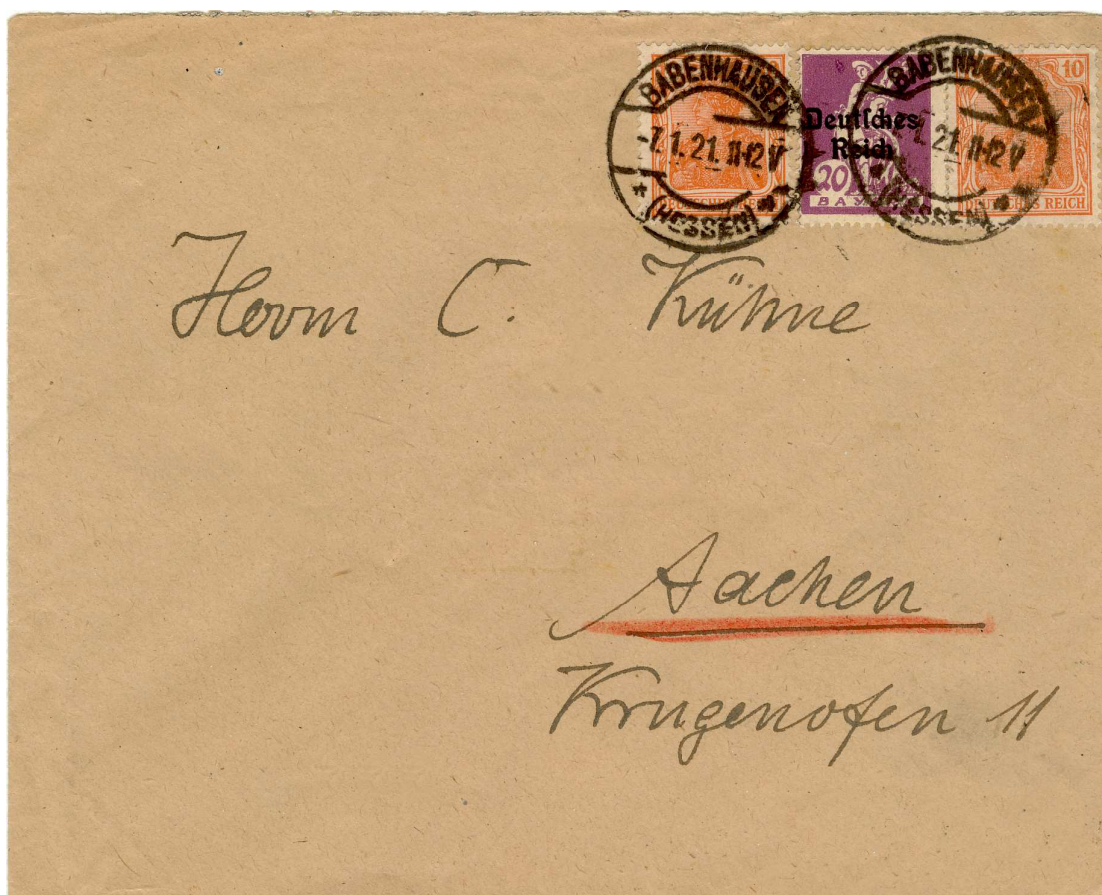 BABENHAUSEN
-7.1.21. 11-12 V
* (HESSEN) *
Deutsches
Reich
20
BAY
BABENHAUSEN
1. 21. 11-12 V
* (HESSEN) *
10
DEUTSCHES REICH
Herrn C. Kühne
Aachen
Krugenofen 11